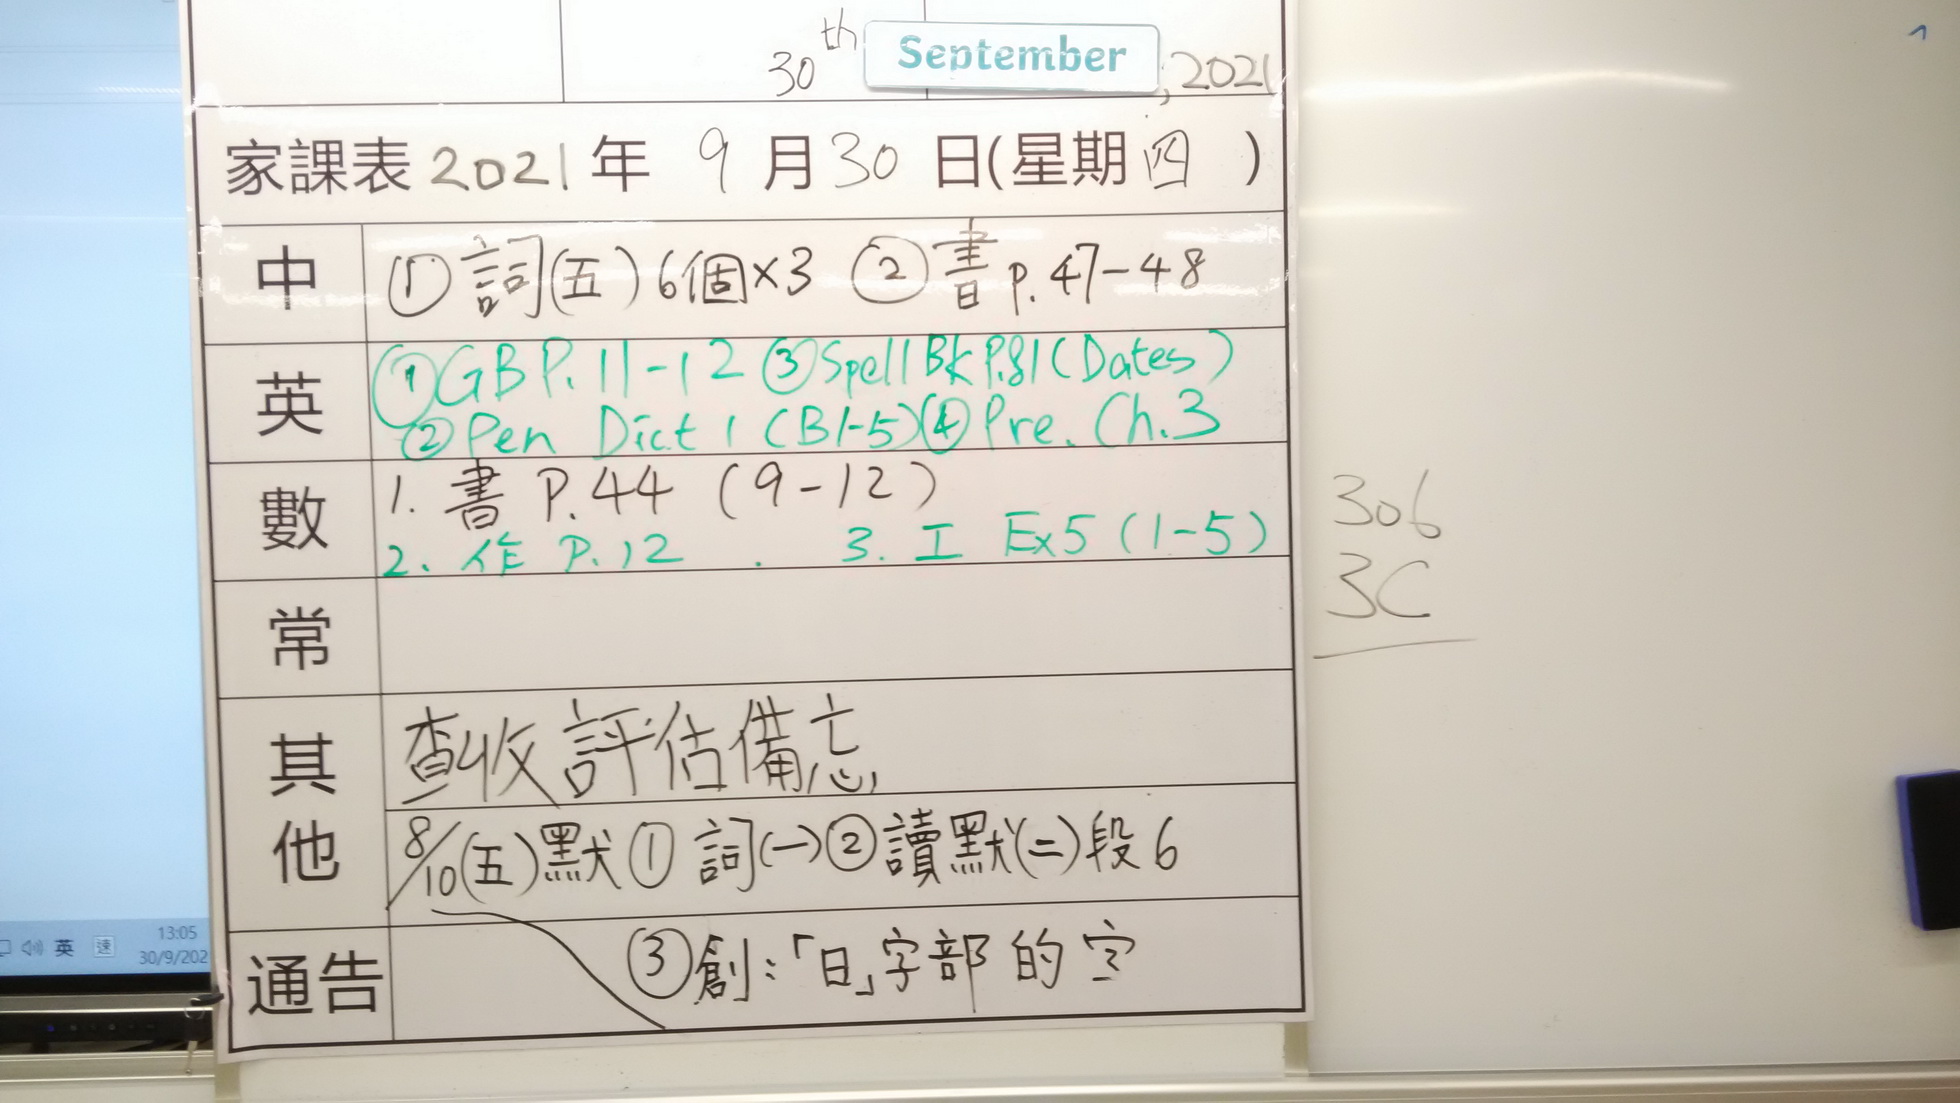 30th September, 2021
家課表 2021 年 9 月 30 日(星期 四 )
中 ① 詞(五) 6個×3 ② 書 p. 47-48
英 ① GB P. 11-12 ③ Spell Bk P.81 (Dates)
② Pen Dict 1 (B1-5) ④ Pre. Ch.3
數 1. 書 P.44 (9-12)
2. 作 P.12 . 3. 工 Ex5 (1-5)
常
其他 查收評估備忘
8/10(五)默 ① 詞(一) ② 讀默(二)段6
通告 ③ 創:「日」字部 的 字
306
3C
13:05
英 速 30/9/202